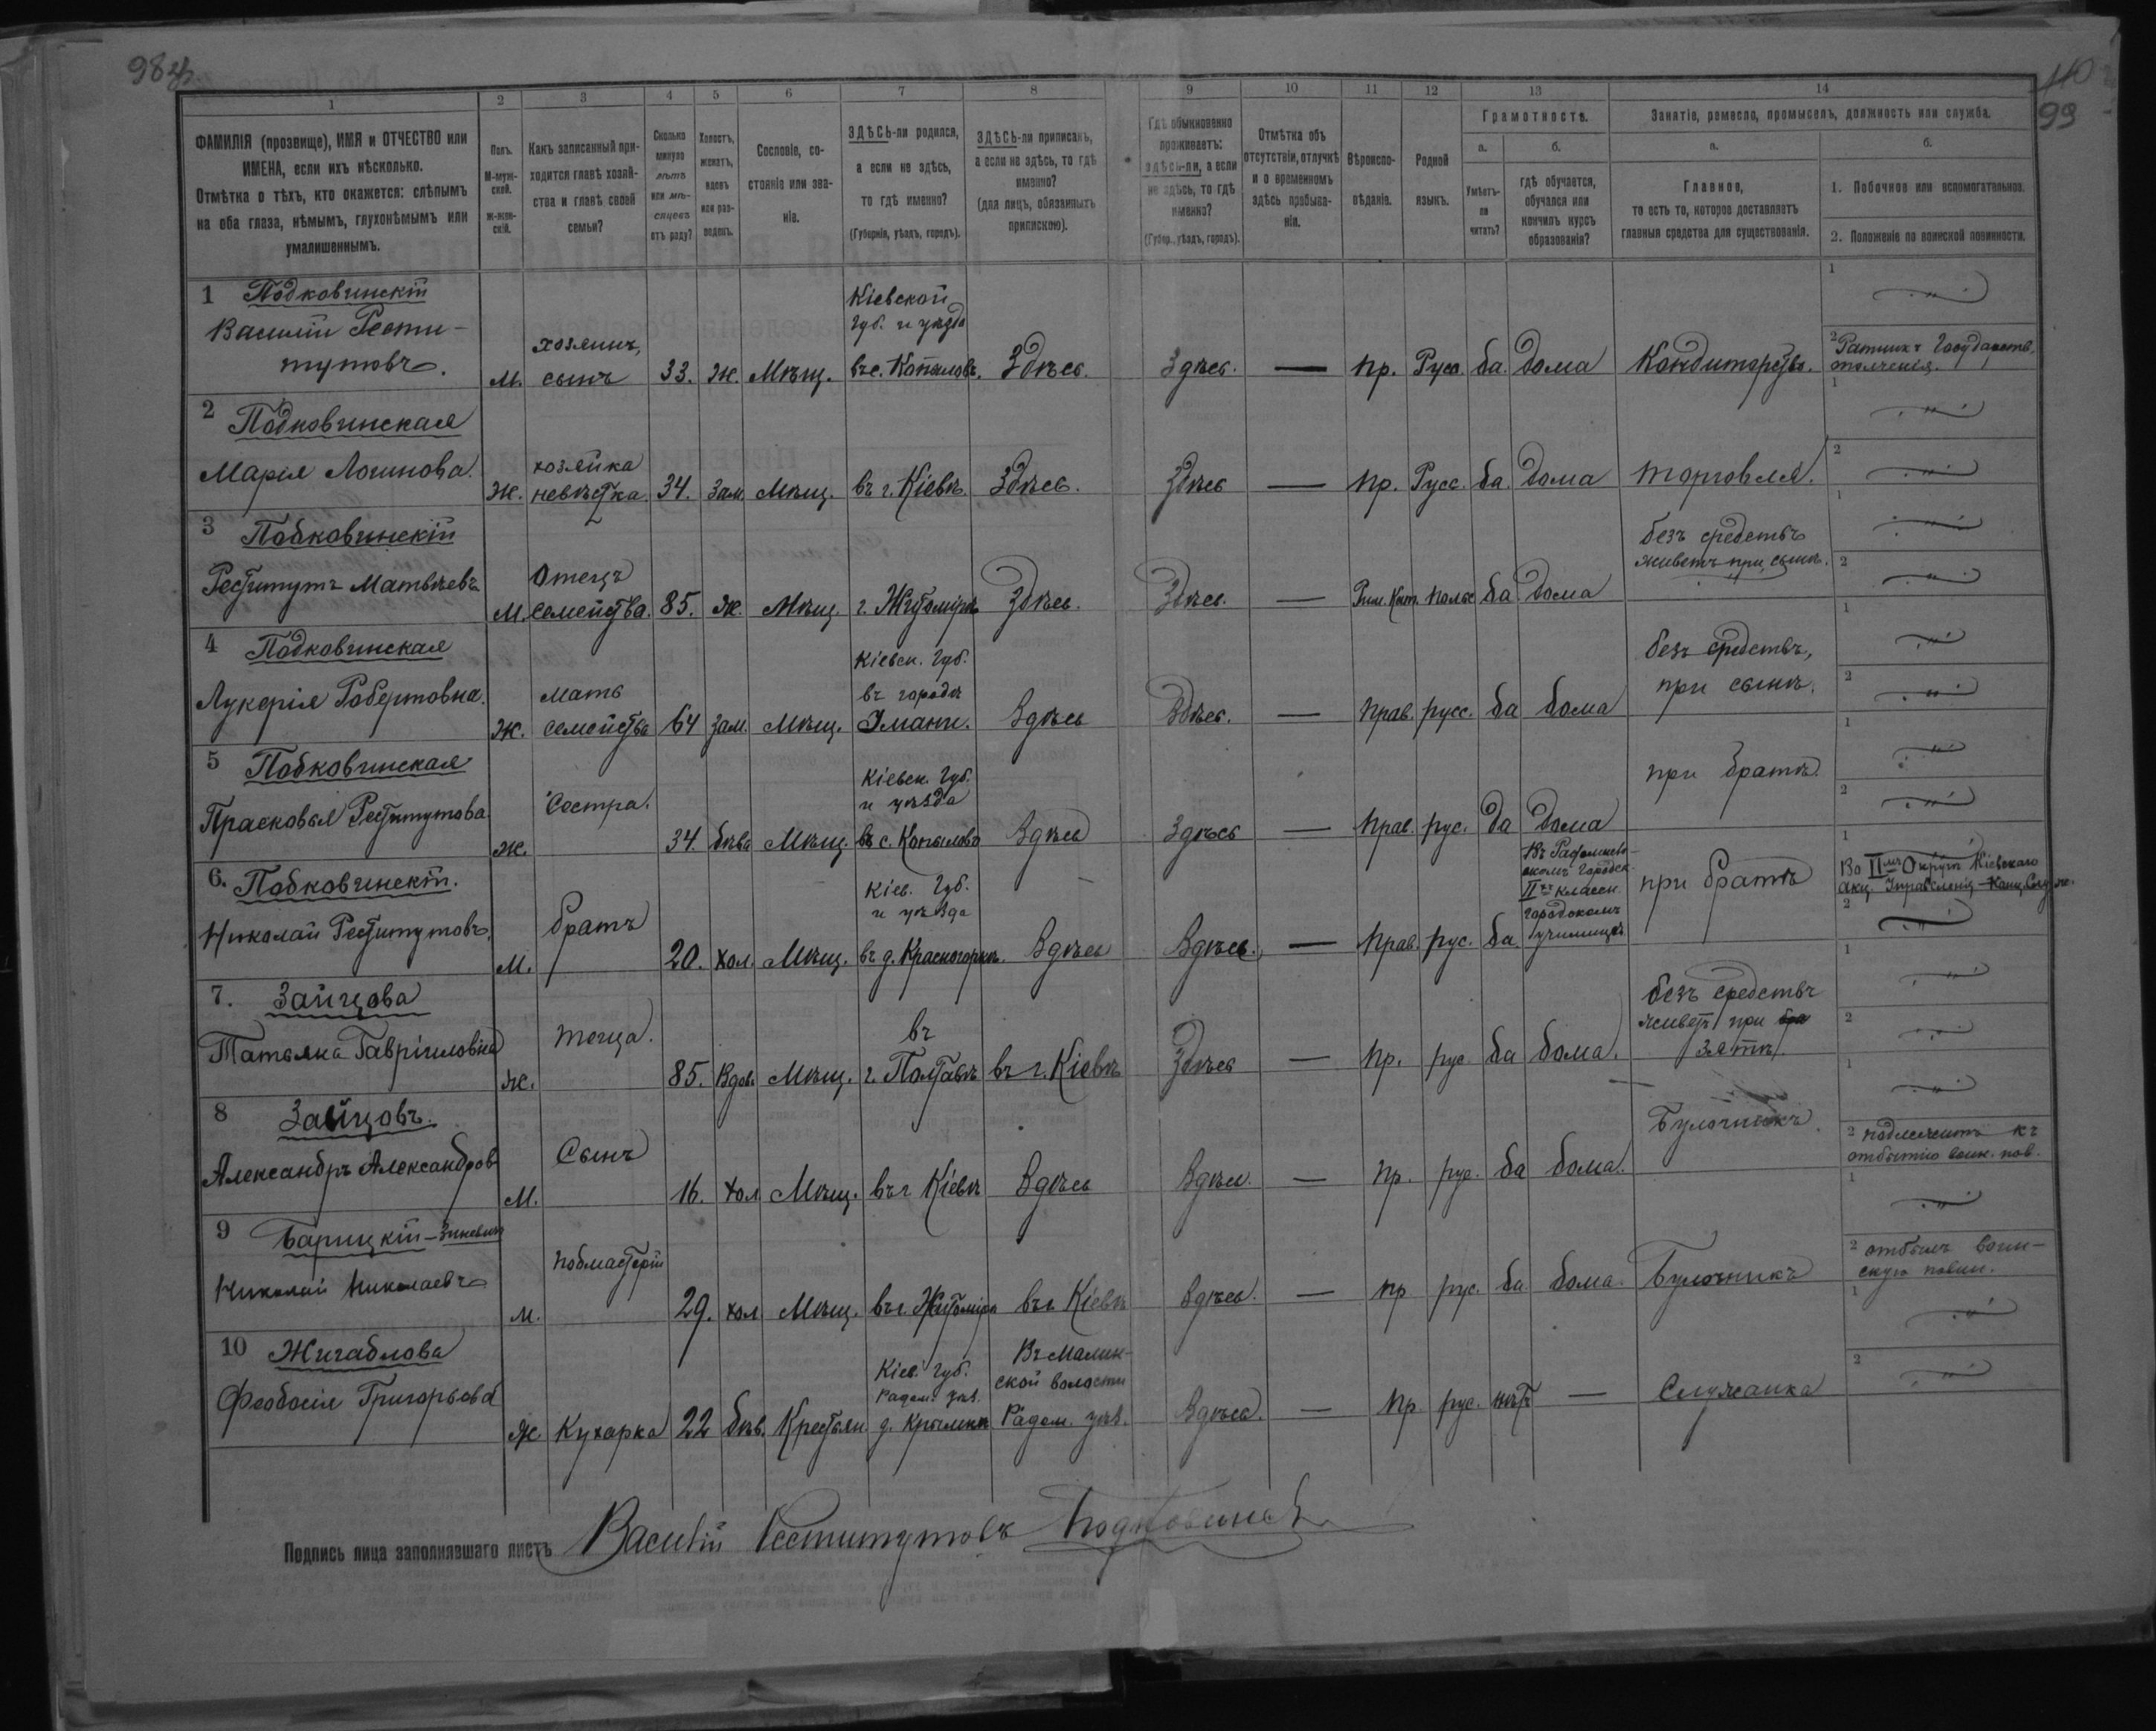 98
110
99
1
2
3
4
5
6
7
8
9
10
11
12
13
14
ФАМИЛІЯ (прозвище), ИМЯ и ОТЧЕСТВО или ИМЕНА, если ихъ нѣсколько.
Отмѣтка о тѣхъ, кто окажется: слѣпымъ на оба глаза, нѣмымъ, глухонѣмымъ или умалишеннымъ.
Полъ. М-мужской. Ж-женскій.
Какъ записанный приходится главѣ хозяйства и главѣ своей семьи?
Сколько минуло лѣтъ или мѣсяцевъ отъ роду?
Холостъ, женатъ, вдовъ или разведенъ.
Сословіе, состояніе или званіе.
ЗДѢСЬ-ли родился, а если не здѣсь, то гдѣ именно? (Губернія, уѣздъ, городъ).
ЗДѢСЬ-ли приписанъ, а если не здѣсь, то гдѣ именно? (для лицъ, обязанныхъ припискою).
Гдѣ обыкновенно проживаетъ: здѣсь-ли, а если не здѣсь, то гдѣ именно? (Губер., уѣздъ, городъ).
Отмѣтка объ отсутствіи, отлучкѣ и о временномъ здѣсь пребываніи.
Вѣроисповѣданіе.
Родной языкъ.
Грамотность.
а. Умѣетъ-ли читать?
б. гдѣ обучается, обучался или кончилъ курсъ образованія?
Занятіе, ремесло, промыселъ, должность или служба.
а. Главное, то есть то, которое доставляетъ главныя средства для существованія.
б.
1. Побочное или вспомогательное.
2. Положеніе по воинской повинности.
1 Подковинскій
Василій Рести-
тутовъ.
м.
хозяинъ,
сынъ
33. Ж. Мѣщ.
Кіевской
Губ. и уѣзда
въ с. Копылов.
Здѣсь.
Здѣсь. — пр. Русс. да дома
Кондиторство.
2 Ратникъ Государств.
ополченія.
2 Подковинская
Марія Логинова.
Ж.
хозяйка
невѣстка.
34. Зам. Мѣщ. въ г. Кіевѣ Здѣсь.
Здѣсь — пр. Русс. да дома
торговля.
3 Подковинскій
Реститутъ Матвѣевъ
м.
Отецъ
семейства.
85. Ж. Мѣщ. г. Житомірѣ Здѣсь.
Здѣсь. — Рим. Кат. польс да дома
безъ средствъ
живетъ при сынѣ.
4 Подковинская
Лукерія Робертовна.
Ж.
мать
семейства
64 зам. Мѣщ.
Кіевск. Губ.
въ городѣ
Умани.
Здѣсь
Здѣсь. — прав. русс. да дома
безъ средствъ,
при сынѣ.
5 Подковинская
Прасковья Реститутова
Ж.
Сестра.
34. дѣв. Мѣщ.
Кіевск. Губ.
и уѣзда
въ с. Копылово
Здѣсь
Здѣсь — прав. рус. да дома
при братѣ.
6. Подковинскій.
Николай Реститутовъ.
М.
братъ
20. хол. Мѣщ.
Кіев. Губ.
и уѣзда
въ д. Красногоркѣ.
Здѣсь
Здѣсь. — прав. рус. да
городскомъ
училищѣ
при братѣ
Во IIмъ Округѣ Кіевскаго
акц. Управленія
7. Зайцова
Татьяна Гавріиловна
Ж.
теща.
85. Вдов. Мѣщ.
въ
г. Полтавѣ
въ г. Кіевѣ
Здѣсь — пр. рус да дома.
безъ средствъ
живетъ при
зятѣ.
8 Зайцовъ.
Александръ Александров
м.
Сынъ
16. хол Мѣщ. въ г Кіевѣ Здѣсь
Здѣсь. — пр. рус. да дома.
Булочникъ.
2 подлежитъ къ
отбытію воин. пов.
9 Барицкій-Зиневичъ
Николай Николаевъ
м.
подмастерій
29. хол Мѣщ. въ г. Житомірѣ въ г. Кіевѣ
Здѣсь. — пр рус. да дома. Булочникъ
2 отбылъ воин-
скую повин.
10 Жигадлова
Феодосія Григорьева
Ж Кухарка 22 дѣв. Крестьян
Кіев. Губ.
Радом. уѣз.
д. Крымкѣ
Въ Малин-
ской волости
Радом. уѣз.
Здѣсь. — пр рус. нѣтъ — Служанка
Подпись лица заполнявшаго листъ Василій Реститутовъ Подковинскій